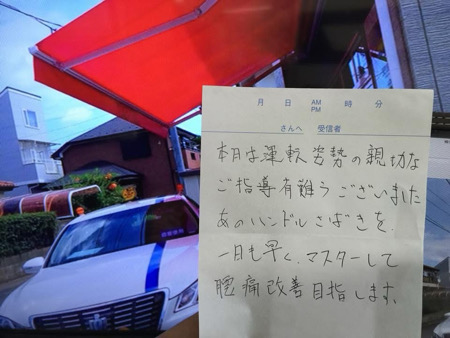 月 日 AM PM 時 分
さんへ 受信者
本日は運転姿勢の親切な
ご指導有難うございました
あのハンドルさばきを、
一日も早く、マスターして
腰痛改善目指します。